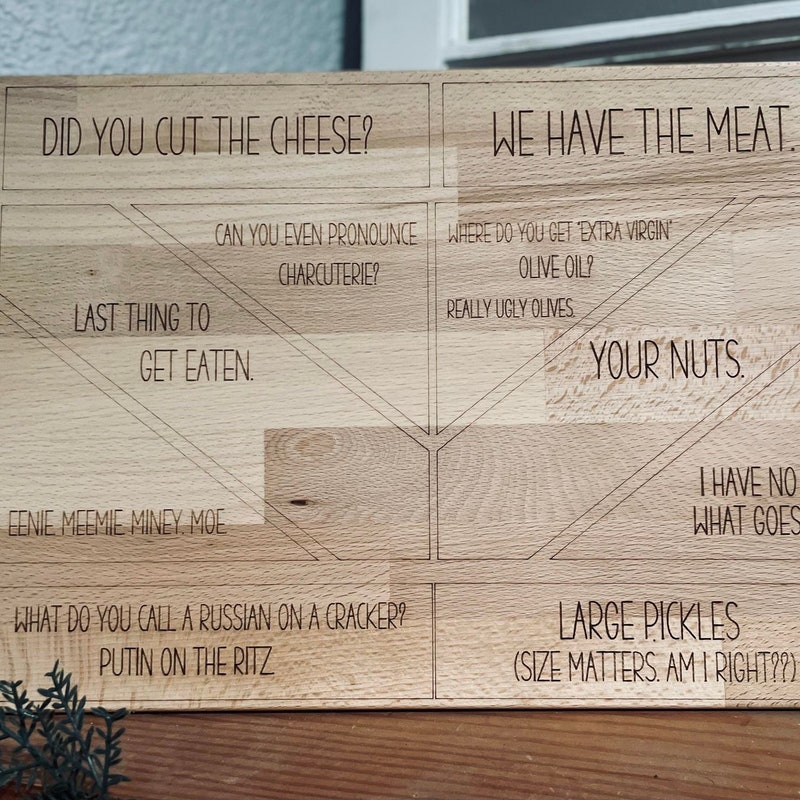 DID YOU CUT THE CHEESE?
WE HAVE THE MEAT.
CAN YOU EVEN PRONOUNCE
CHARCUTERIE?
WHERE DO YOU GET "EXTRA VIRGIN"
OLIVE OIL?
REALLY UGLY OLIVES.
LAST THING TO
GET EATEN.
YOUR NUTS.
EENIE. MEEMIE. MINEY. MOE.
I HAVE NO
WHAT GOES
WHAT DO YOU CALL A RUSSIAN ON A CRACKER?
PUTIN ON THE RITZ
LARGE PICKLES
(SIZE MATTERS. AM I RIGHT??)